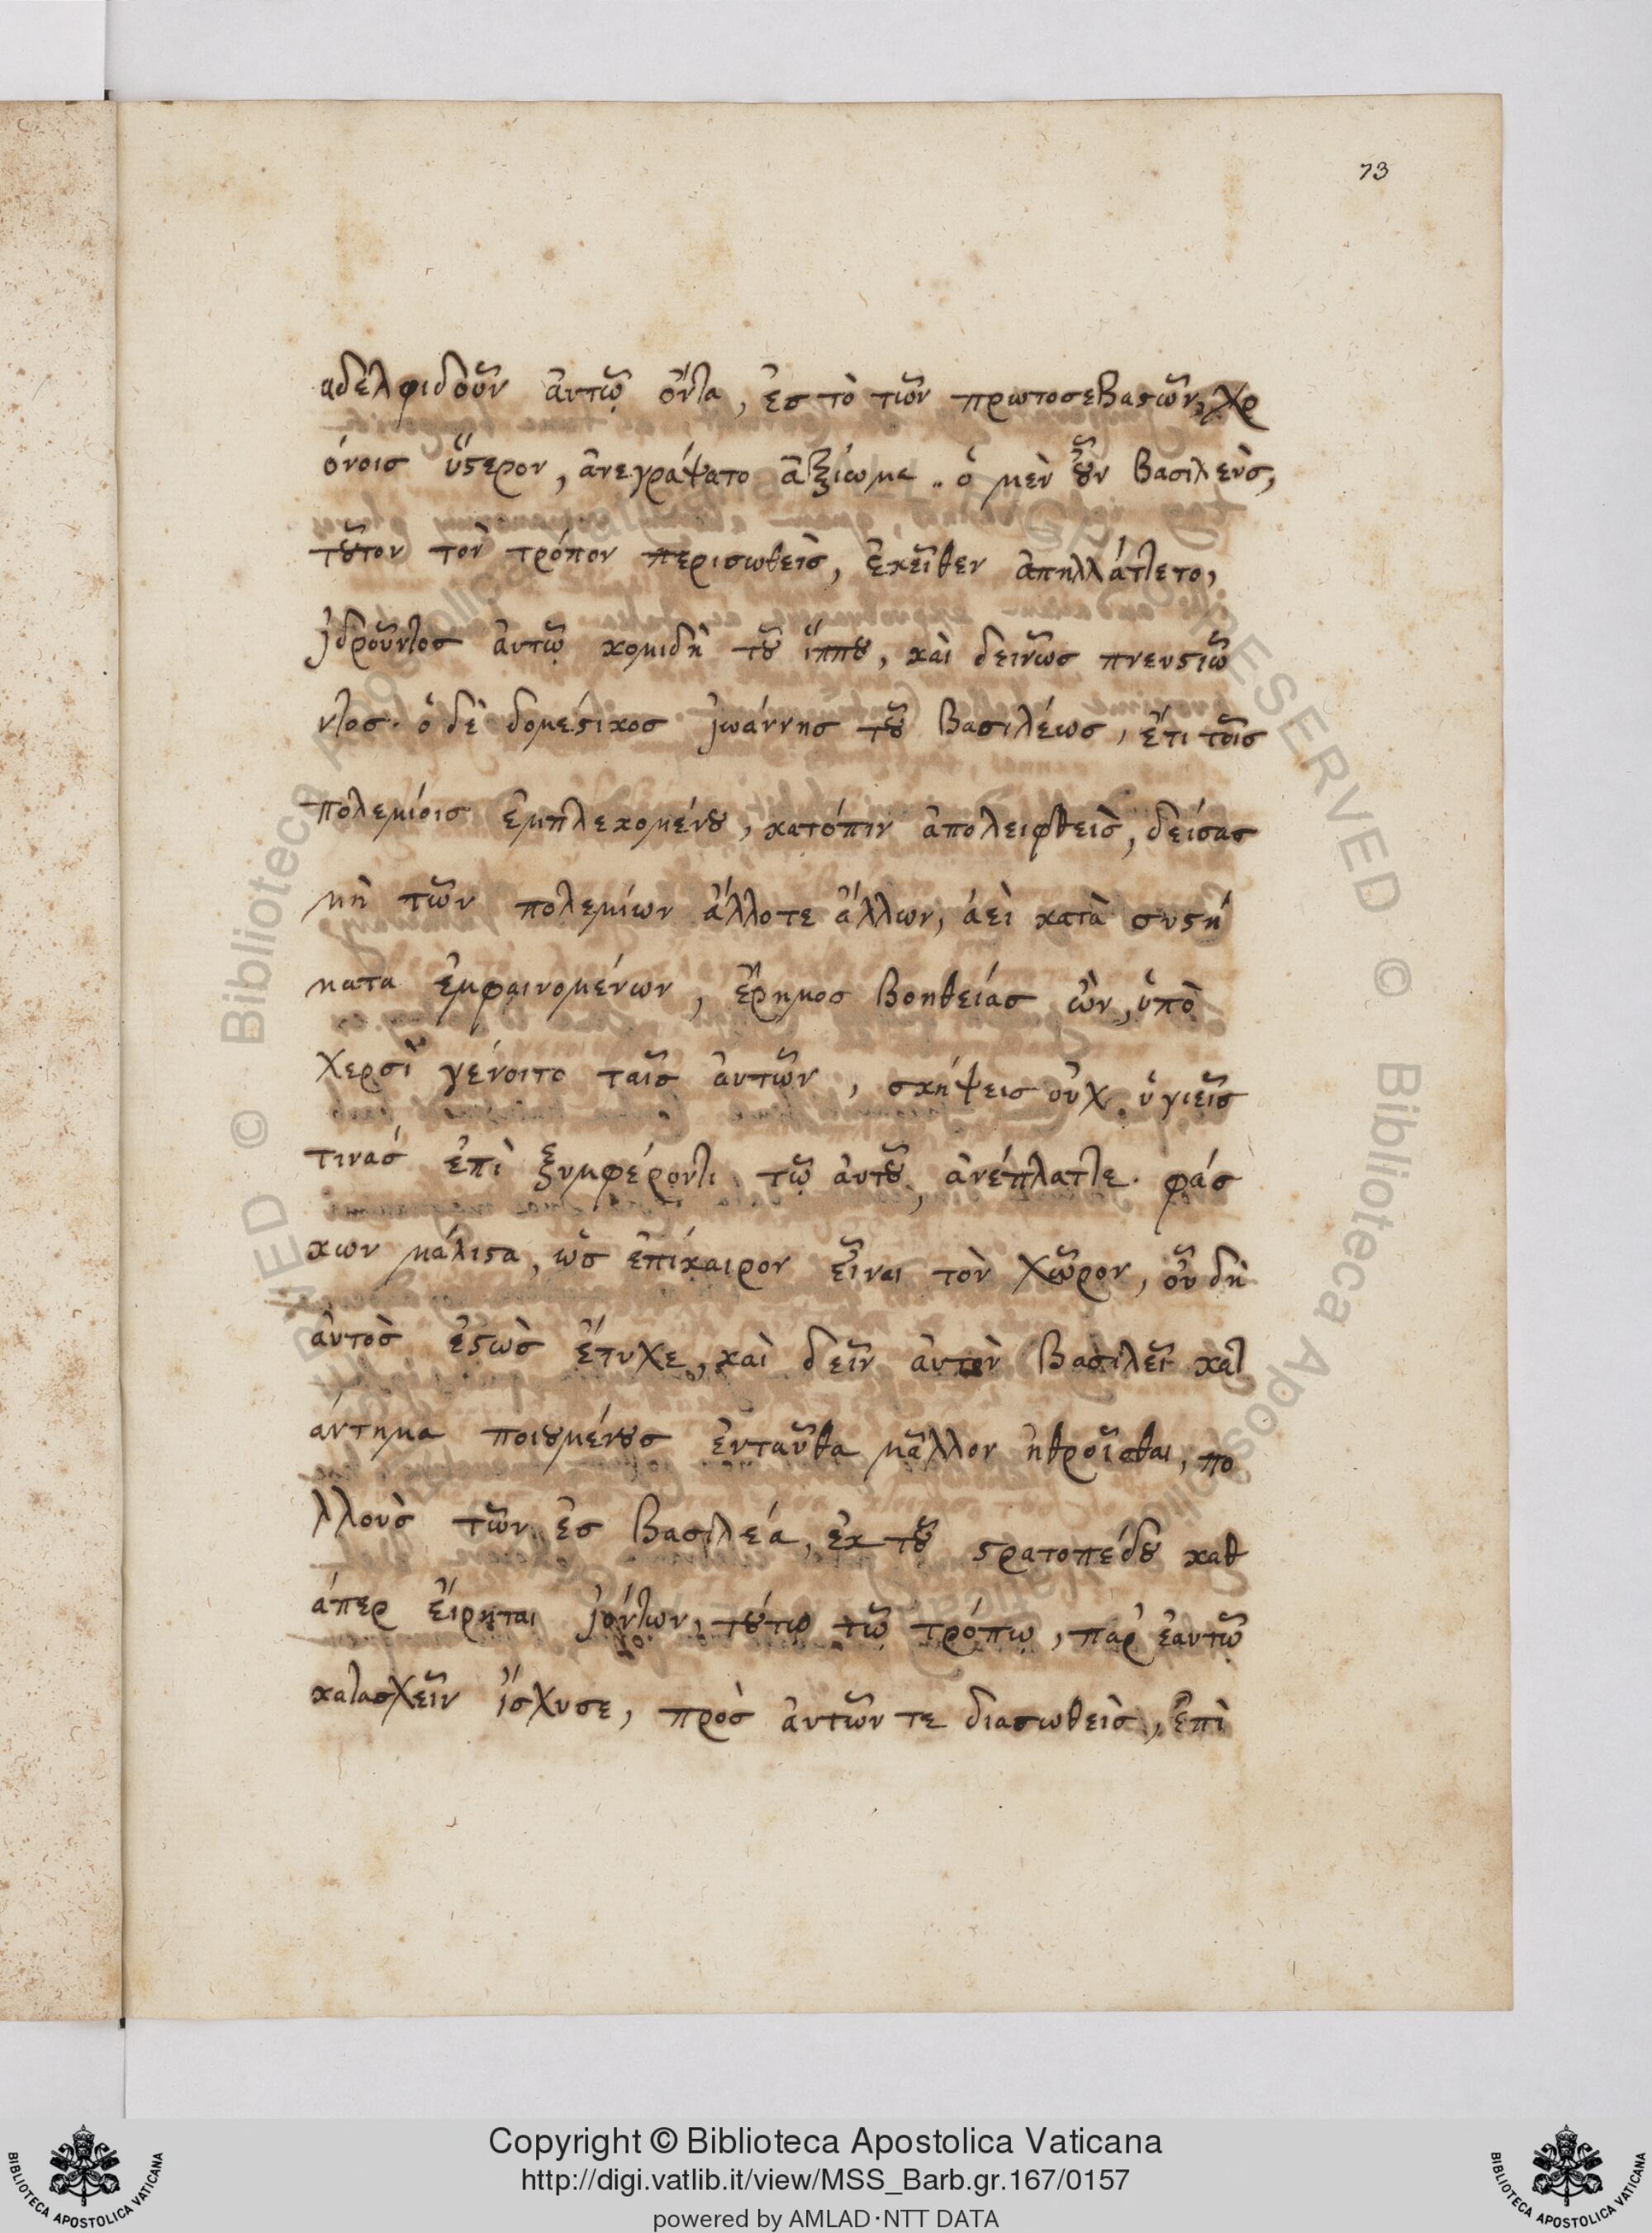 73
αδελφιδοῦν ἀυτῷ ὄντα, ἐσ τὸ τῶν πρωτοσεβαϛῶν, χρ
όνοισ ὕϛερον, ἀνεγράψατο ἀξίωμα .. ὁ μὲν ȣ̓͂ν βασιλεὺσ,
τȣ͂τον τὸν τρόπον περισωθεὶσ, ἐκεῖθεν ἀπηλλάττετο,
ἱδροῦντοσ ἀυτῷ κομιδὴ τȣ͂ ἵππȣ, καὶ δεινῶσ πνευϛιῶ
ντοσ· ὁ δὲ δομέϛικοσ ἰωάννησ τȣ͂ βασιλέωσ, ἔτι τοῖσ
πολεμίοισ ἐμπλεκομένȣ, κατόπιν ἀπολειφθεὶσ, δείσασ
μὴ τῶν πολεμίων ἄλλοτε ἄλλων, ἀεὶ κατὰ συϛή
ματα ἐμφαινομένων, ἔρημοσ βοηθείάσ ὢν, ὑπὸ
χερσὶ γένοιτο ταῖσ ἀυτῶν, σκήψεισ οὐχ ὑγιεῖσ
τινασ ἐπὶ ξυμφέροντι τῷ ἀυτȣ͂, ἀνέπλαττε· φάσ
κων μάλιϛα, ὡσ ἐπίκαιρον εἶναι τὸν χῶρον, οὗ δὴ
ἀυτὸσ ἑϛὼσ ἔτυχε, καὶ δεῖν ἀυτὸν βασιλεῖ κατ
άντημα ποιȣμένȣσ ἐνταῦθα μᾶλλον ἠθροῖσθαι, πο
λλοὺσ τῶν ἐσ βασιλέα, ἐκ τȣ͂ ϛρατοπέδȣ καθ
άπερ ἔιρηται ἰόντων, τȣ́τῳ τῷ τρόπῳ, παρ' ἑαυτῷ
κατασχεῖν ἴσχυσε, πρὸσ ἀυτῶν τε διασωθεὶσ, ἐπὶ
Copyright © Biblioteca Apostolica Vaticana
http://digi.vatlib.it/view/MSS_Barb.gr.167/0157
powered by AMLAD·NTT DATA